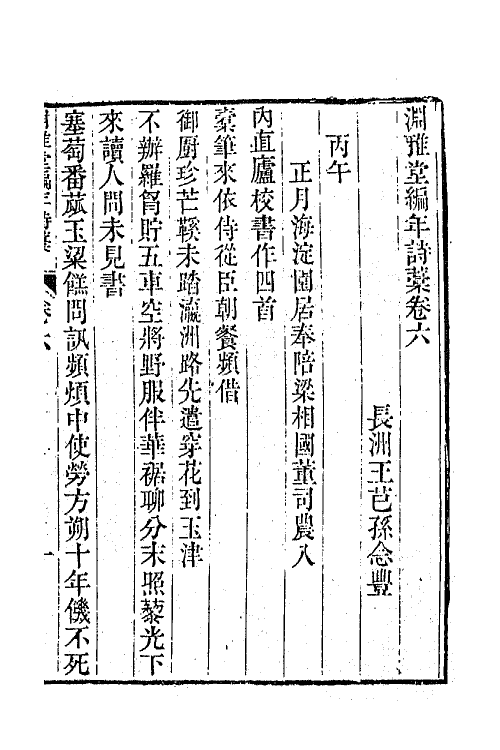 淵雅堂編年詩藁卷六
長洲王芑孫念豐
丙午
正月海淀園居奉陪梁相國董司農入
內直廬校書作四首
橐筆來依侍從臣朝餐頻借
御厨珍芒鞵未踏瀛洲路先遣穿花到玉津
不辦羅胷貯五車空將野服伴華裾聊分末照藜光下
來讀人間未見書
塞萄番蓏玉粱餻問訊頻煩中使勞方朔十年僟不死
淵雅堂編年詩藁
卷六
一